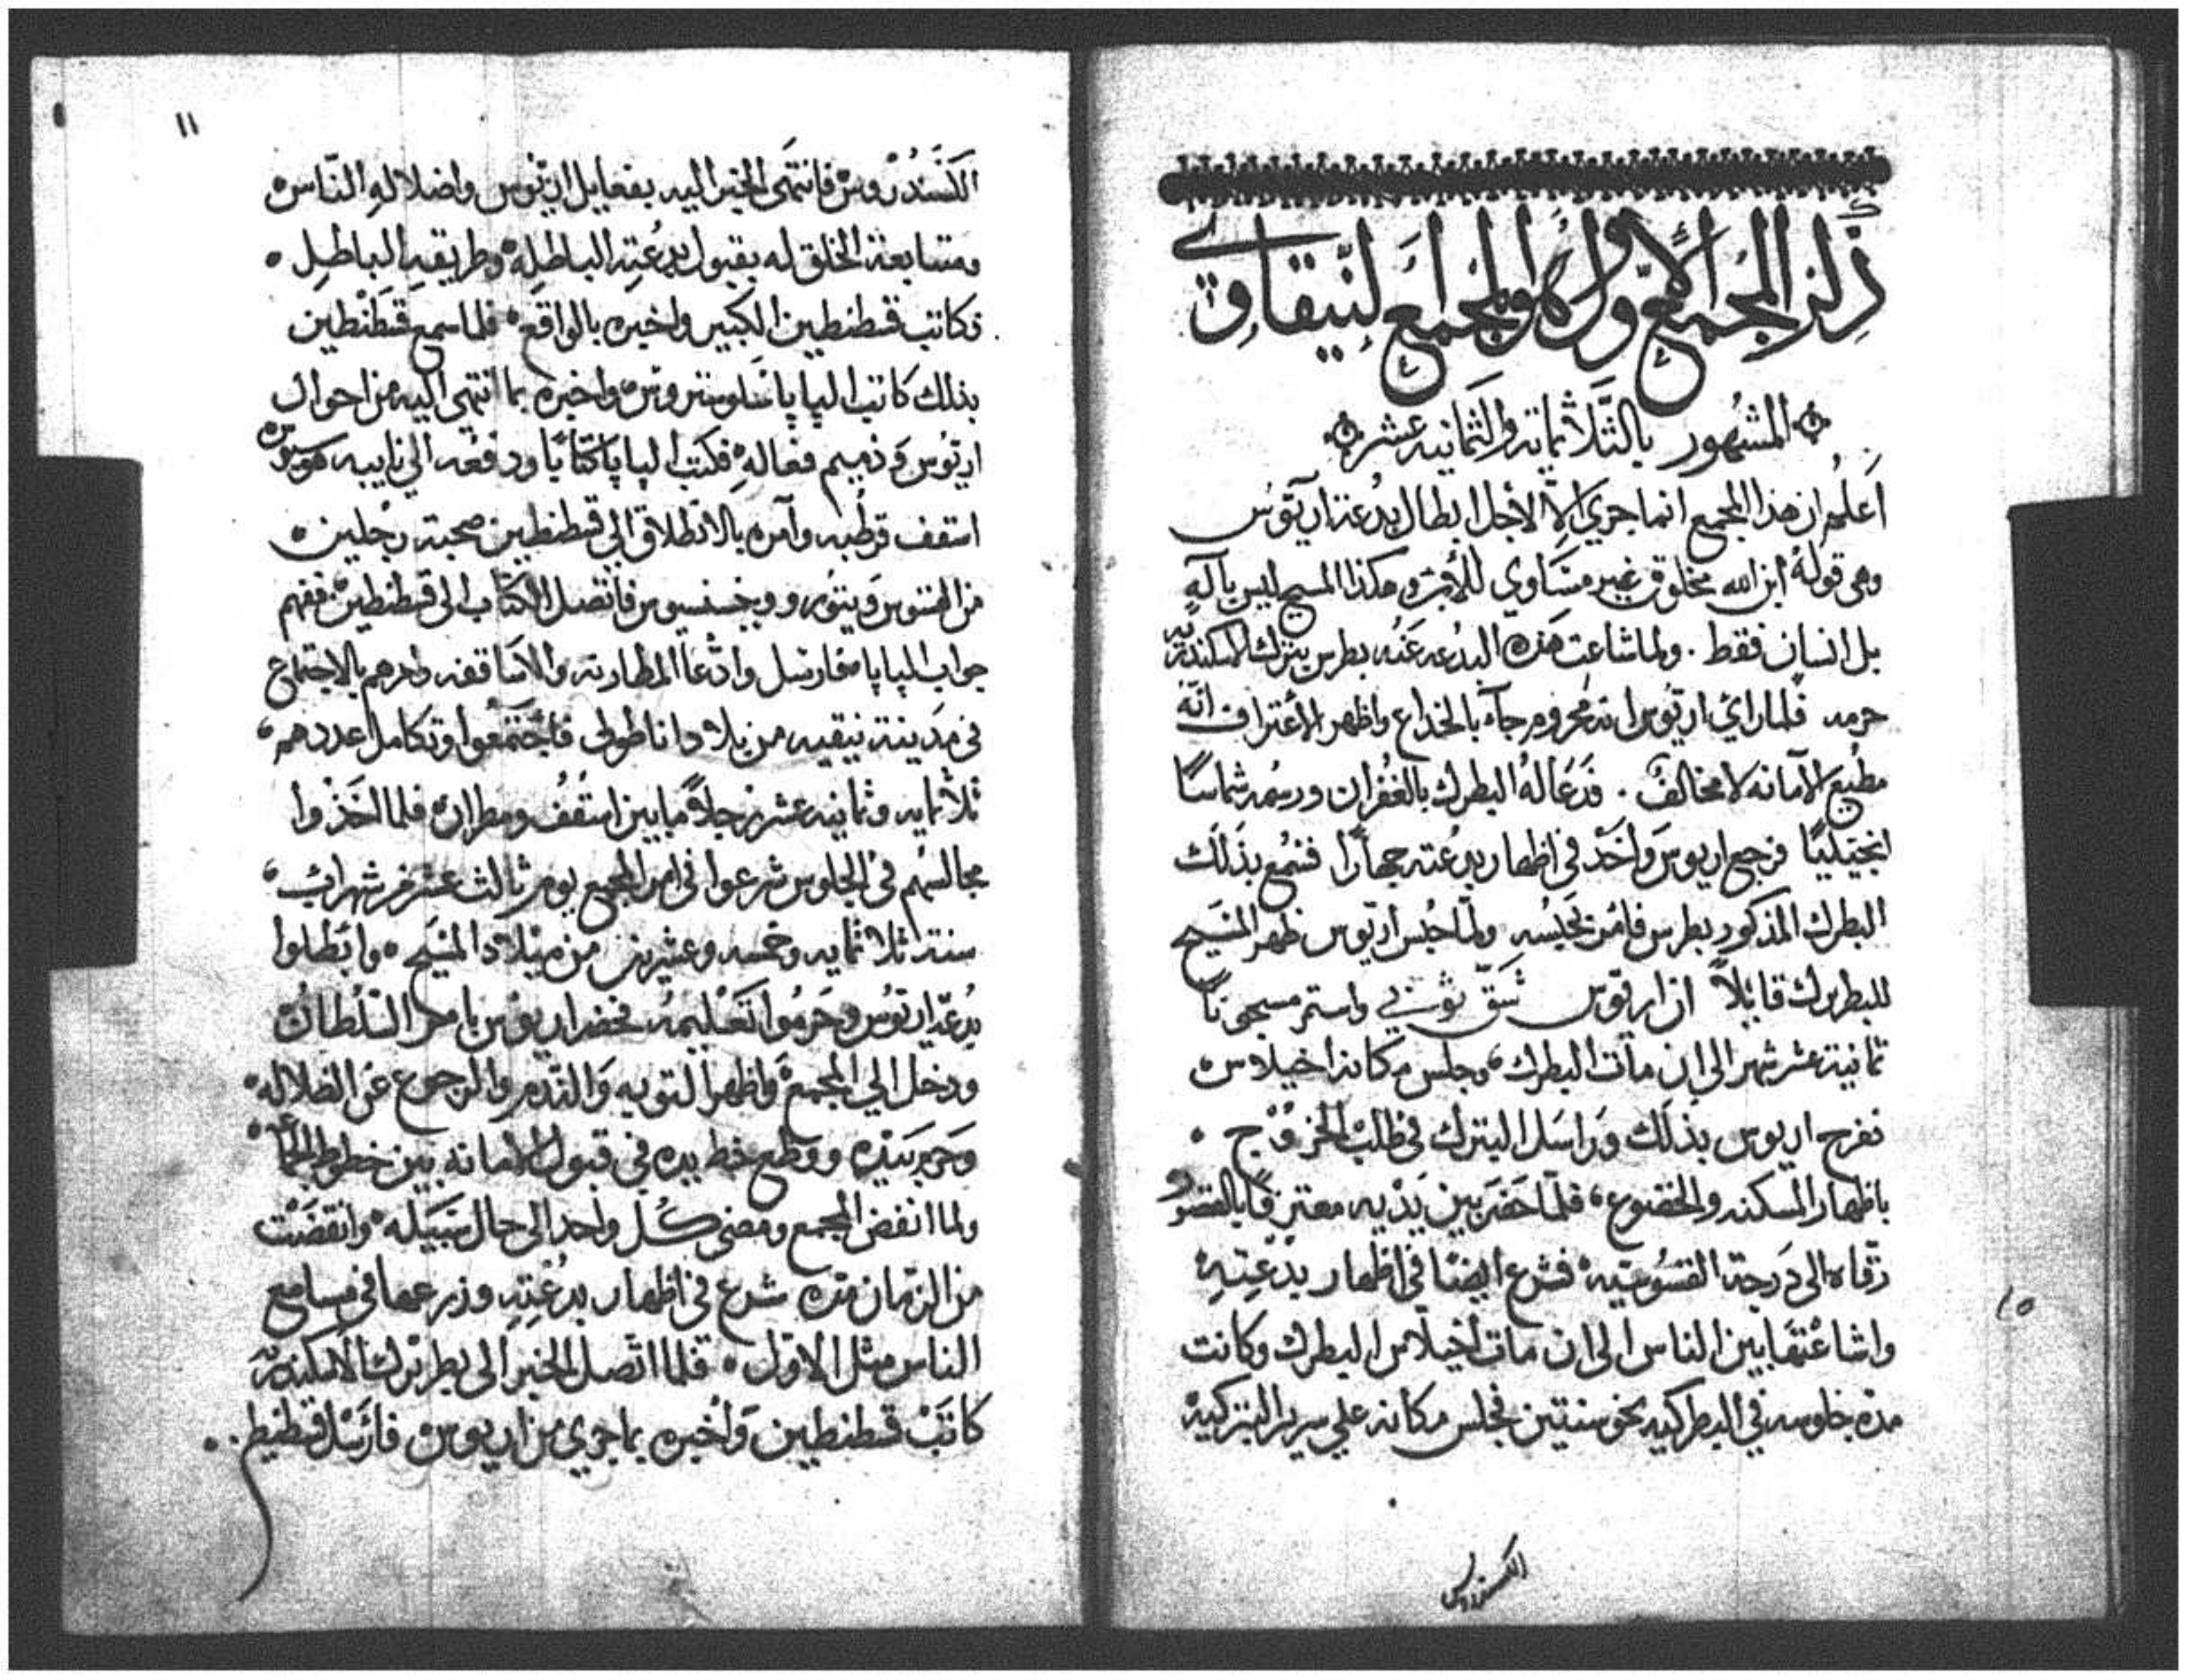 ذكر المجمع الاول وهو المجمع النيقاوي
المشهور بالثلاثماية والثمانيه عشر
اَعلم ان هذا المجمع انما جري الا لاجل ابطال بدعة اريوس
وهي قوله ابن الله مخلوق غير متساوي للاب وهكذا المسيح ليس باله
بل انسان فقط . ولما شاعت هذه البدعه عنه بطرس بترك الاسكندريه
حرمه فلما راي اريوس انه محروم جآء بالخداع واظهر الاعتراف انه
مطيع الامانه لا مخالف . فدعا له البطرك بالغفران ورسمه شماسًا
انجيليًا فرجع اريوس واخذ في اظهار بدعته جهارًا فسمع بذلك
البطرك المذكور بطرس فامر بحبسه ولما حبس اريوس ظهر المسيح
للبطرك قايلاً ان اريوس شق ثوبي واستمر مسجونًا
ثمانية عشر شهر الى ان مات البطرك وجلس مكانه اخيلاوس
ففرح اريوس بذلك وراسل البترك في طلب الخروج
باظهار المسكنه والخضوع فلما حضر بين يديه معترفًا بالقصور
رقاه الى درجة القسوسيه فشرع ايضًا في اظهار بدعته
واشاعتها بين الناس الى ان مات اخيلاس البطرك وكانت
مدة جلوسه في البطركيه نحو سنتين فجلس مكانه علي سرير البتركيه
الكسندروس
١١
الكسندروس فانتهى الخبر اليه بفعايل اريوس واضلاله الناس
ومتابعة الخلق له بقبول بدعته الباطله وطريقه الباطل
فكاتب قسطنطين الكبير واخبره بالواقع فلما سمع قسطنطين
بذلك كاتب البابا سلوستروس واخبره بما انتهى اليه من احوال
اريوس وذميم فعاله فكتب البابا كتابًا ودفعه الي نايبه هوسيوس
اسقف قرطبه وآمره بالانطلاق الي قسطنطين صحبة رجلين
من القسوس ويتور وويخنسيوس فاتصل الكتاب الى قسطنطين ففهم
جواب البابا فارسل وادعا المطارنه والاساقفه وامرهم بالاجتماع
في مدينة نيقيه من بلاد اناطولي فاجتمعوا وتكامل عددهم
ثلاثمايه وثمانيه عشر رجلاً مابين اسقف ومطران فلما اخذوا
مجالسهم في الجلوس شرعوا في امر المجمع يوم ثالث عشر من شهر اب
سنة ثلاثمايه وخمسه وعشرين من ميلاد المسيح وابطلوا
بدعة اريوس وحرموا تعليمه فحضر اريوس بامر السلطان
ودخل الي المجمع واظهر التوبه والندم والرجوع عن الضلاله
ووضع خط يده في قبول الامانه بين خطوط
ولما انفض المجمع ومضى كل واحد الى حال سبيله وانقضت
من الزمان مده شرع في اظهار بدعته وزرعها في مسامع
الناس مثل الاول فلما اتصل الخبر الى بطريرك الاسكندريه
كاتب قسطنطين واخبره بما جري من اريوس فارسل قسطنطين